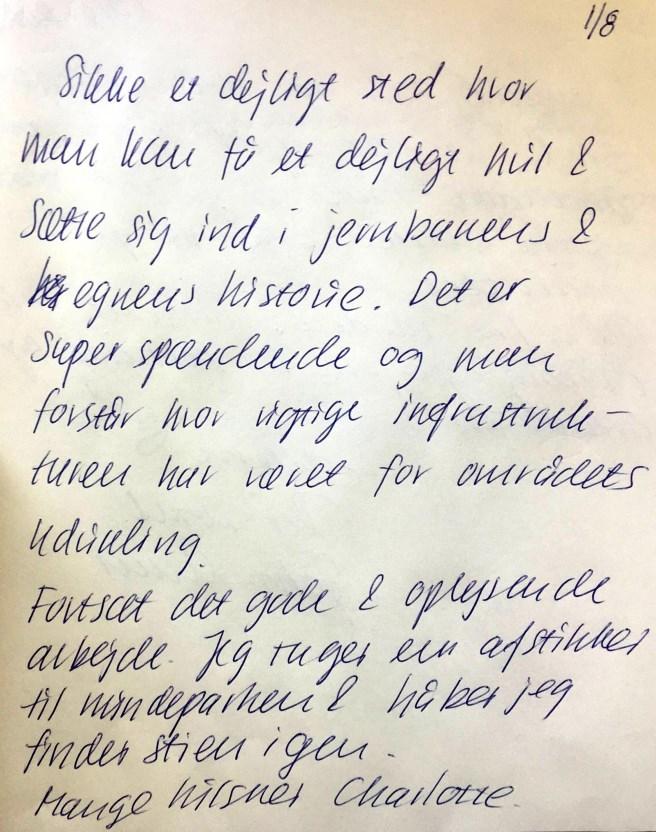 1/8
Sikke et dejligt sted hvor
man kan få et dejligt hvil &
Sætte sig ind i jernbanens &
egnens historie. Det er
Super spændende og man
forstår hvor vigtige infrastruk-
turen har været for områdets
Udvikling.
Fortsæt det gode & oplysende
arbejde. Jeg tager en afstikker
til mindeparken & håber jeg
finder stien igen.
Mange hilsner Charlotte.